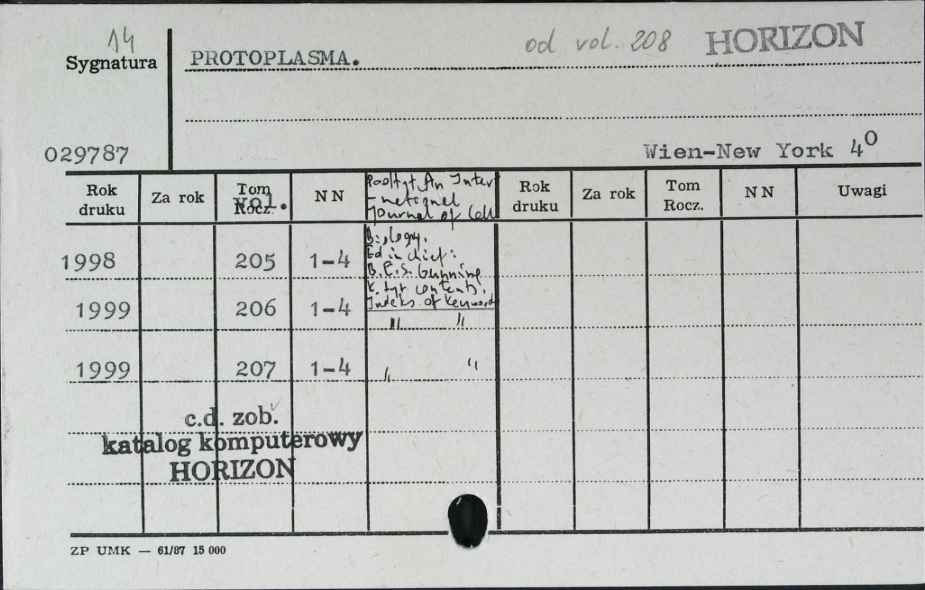 14
Sygnatura
PROTOPLASMA.
od vol. 208 HORIZON
029787
Wien-New York 4º
Rok druku
Za rok
Tom Rocz.
vol.
N N
An Inter
Journal of Cell
Biology.
Ed in chief:
B.E.S. Gunning
k. tyt contents.
Indeks of Keyword
Rok druku
Za rok
Tom Rocz.
N N
Uwagi
1998 205 1-4
1999 206 1-4 " "
1999 207 1-4 " "
c.d. zob.
katalog komputerowy
HORIZON
ZP UMK — 61/87 15 000